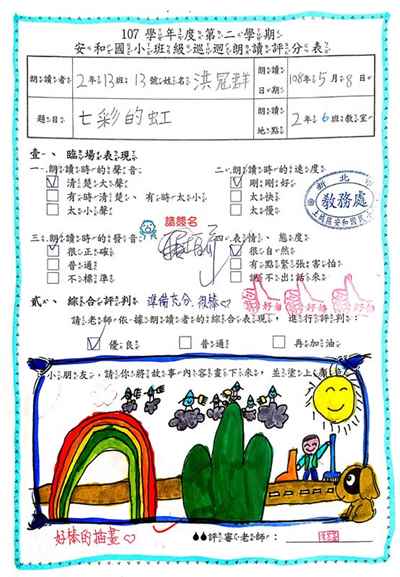 107 學年度第二學期
安和國小班級巡迴朗讀評分表
朗讀者 2年13班 13號 姓名 洪冠群 朗讀日期 108年5月8日
題目 七彩的虹 朗讀地點 2年6班教室
壹、臨場表現
一、朗讀時的聲音 二、朗讀時的速度
清楚大聲 剛剛好
有時清楚、有時太小 太快
太小聲 太慢
新北
教務處
請簽名
三、朗讀時的發音 表情、態度
很正確 很自然
普通 有點緊張害怕
不標準 說不出話來
貳、綜合評判 準備充分,很棒♡
請老師依據朗讀者的綜合表現,進行評判:
優良 普通 再加油
小朋友,請你將故事內容畫下來,並塗上顏色
好棒的插畫♡
評審老師: